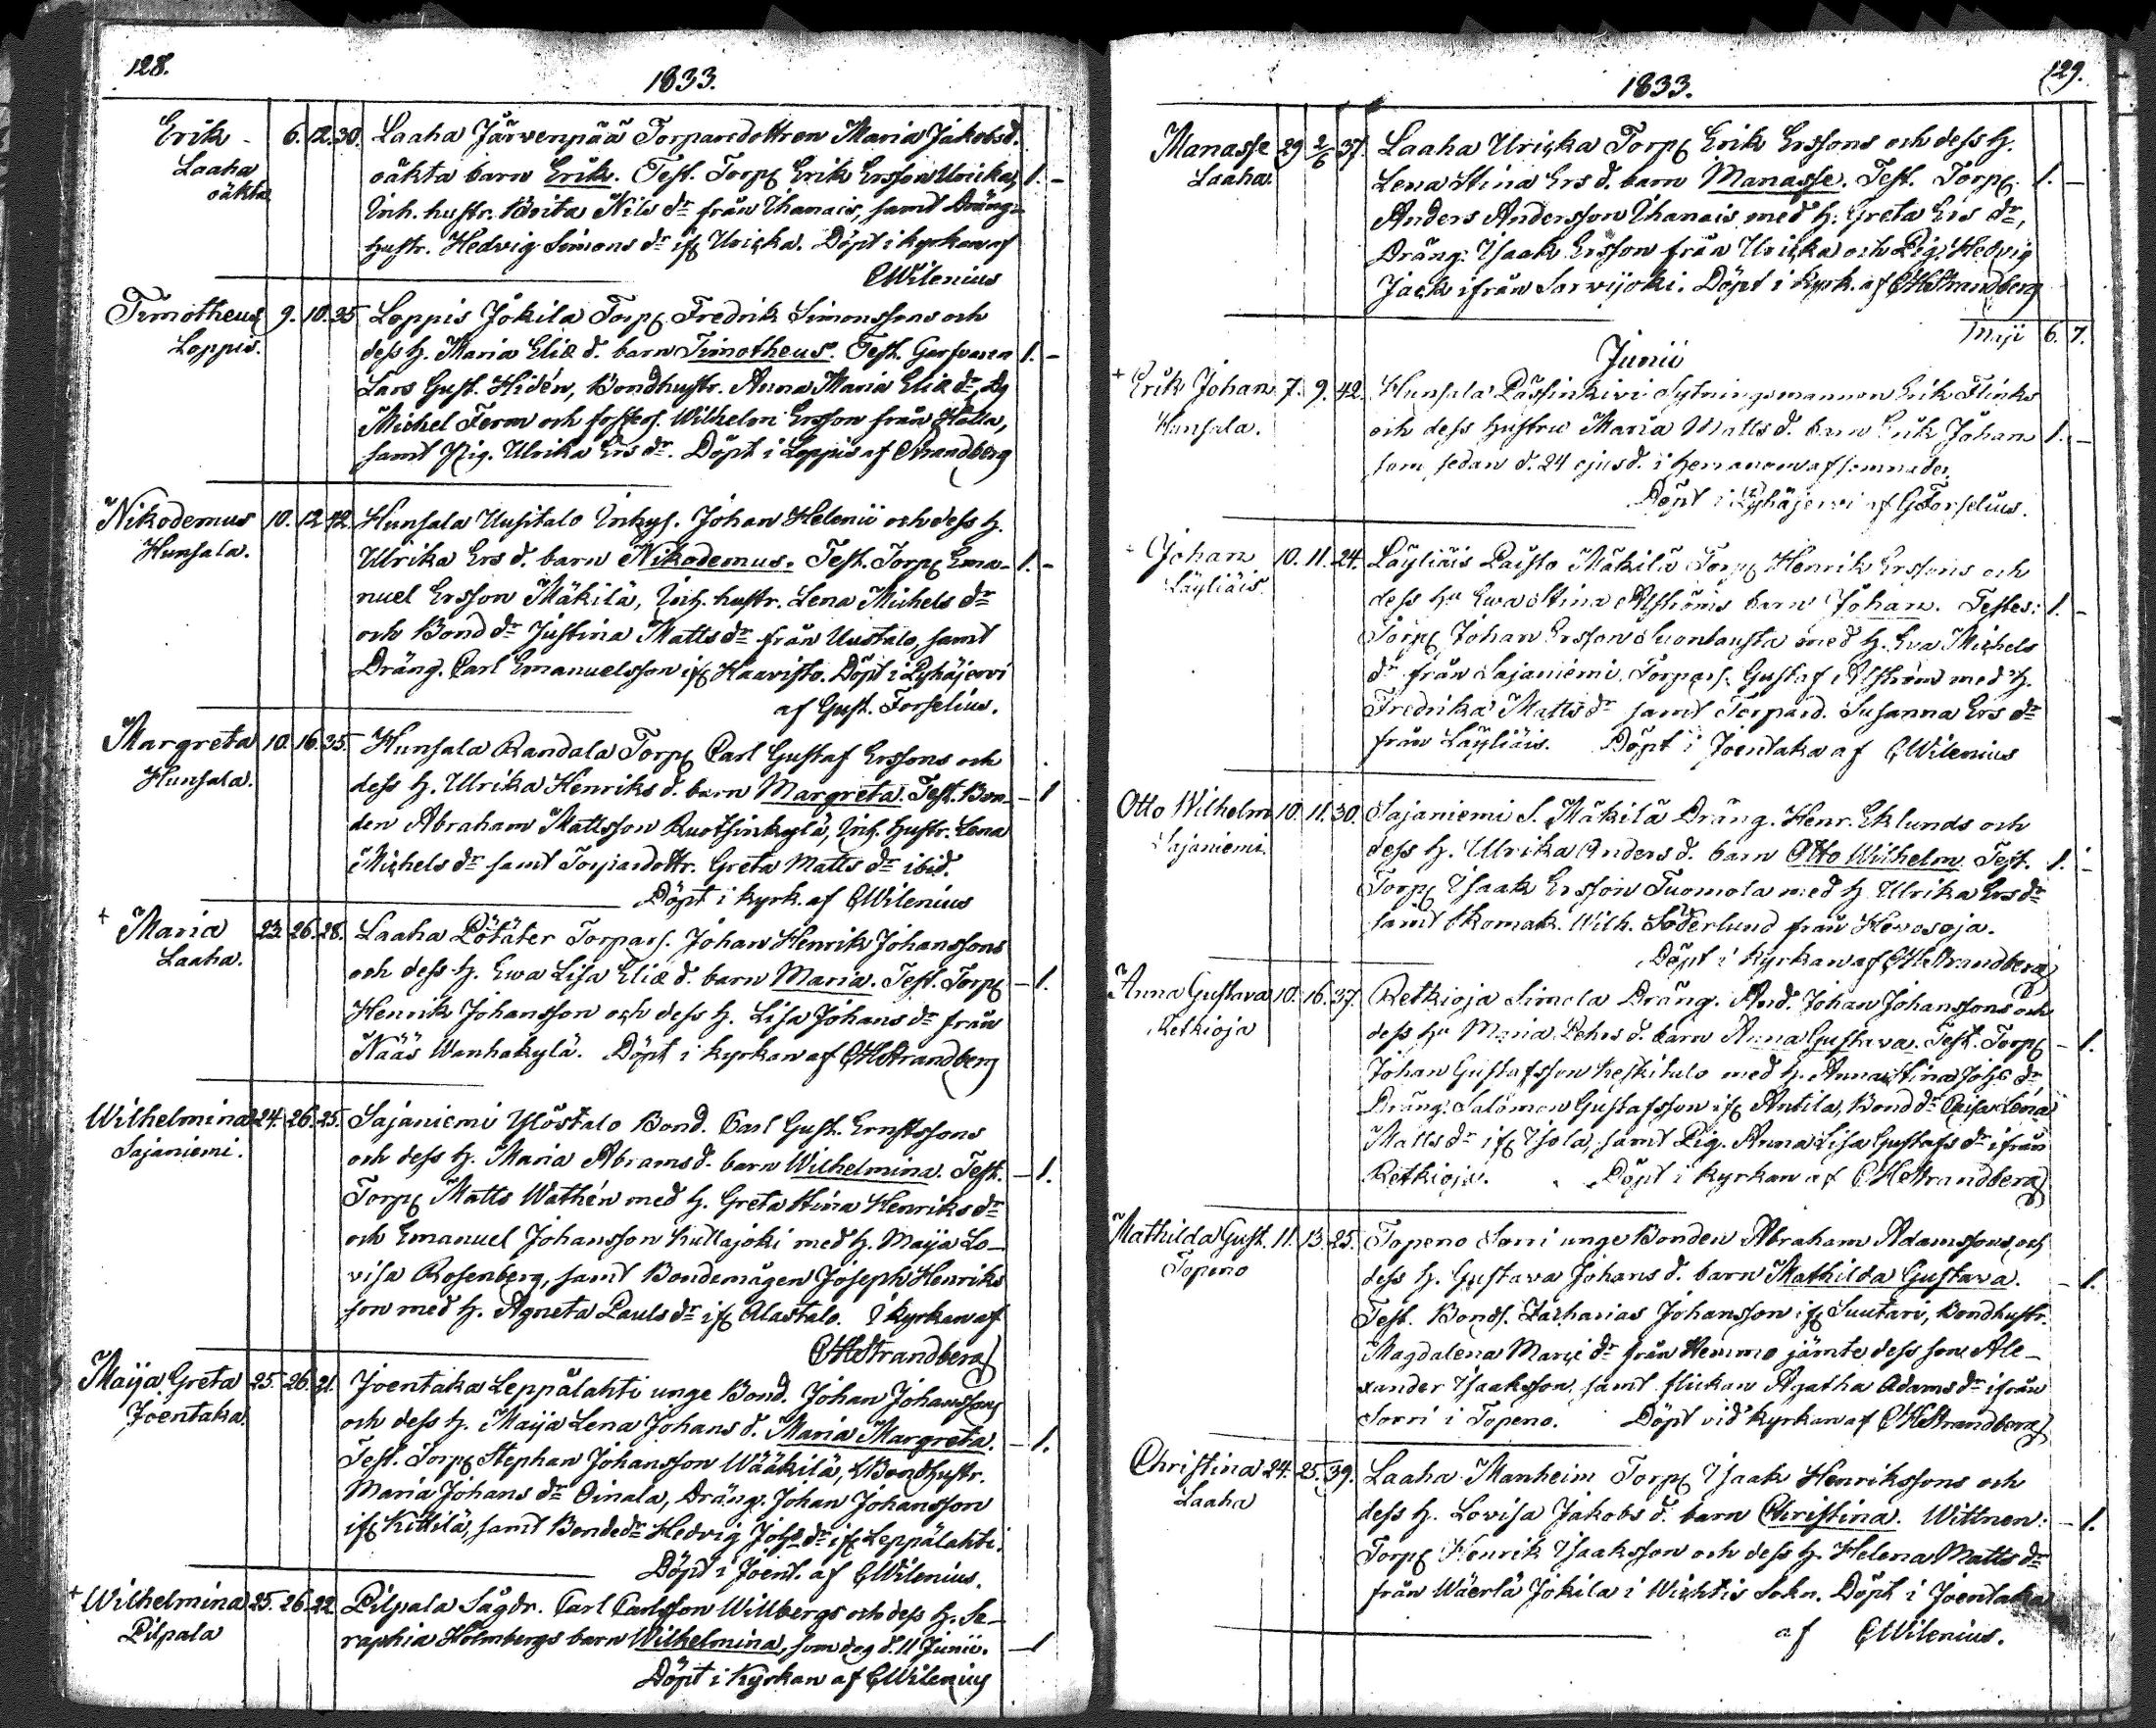 128.
1833.
Erik 6. 12. 30. Laaha Järvenpää Torparedottren Maria Jakobsd.
Laaha oäkta barn Erik. Test. Torp. Erik Ersson Uricka, 1. -
oäkta Inh. hustr. Brita Nils dr från Thanais, samt Dräng-
hustr. Hedvig Simons dr if. Uricka. Döpt i kyrkan af
CWilenius
Timotheus 9. 10. 35 Loppis Jokila Torp. Fredrik Simonssons och
Loppis. dess h. Maria Eliæ d. barn Timotheus. Test. Garfvaren 1. -
Lars Gust. Hidén, Bondhustr. Anna Maria Eliæ dr, Dg
Michel Ferm och fosters. Wilhelm Ersson från Hatta,
samt Pig. Ulrika Ers dr. Döpt i Loppis af Strandberg
Nikodemus 10. 12. 42. Hunsala Uusitalo Inhys. Johan Helenii och dess h.
Hunsala. Ulrika Ers d. barn Nikodemus. Test. Torp. Ema- 1. -
nuel Ersson Mäkilä, Inh. hustr. Lena Michels dr
och Bond dr Justina Matts dr från Uustalo, samt
Dräng. Carl Emanuelsson if. Haavisto. Döpt i Pyhäjervi
af Gust. Forselius.
Margreta 10. 16. 35. Hunsala Randala Torp. Carl Gustaf Erssons och
Hunsala. dess h. Ulrika Henriks d. barn Margreta. Test. Bon- - 1
den Abraham Mattsson Ruotsinkylä, Inh. hustr. Lena
Michels dr samt Torpardottr. Greta Matts dr ibid.
Döpt i kyrk. af CWilenius
+ Maria 23. 26. 28. Laaha Pötäter Torpars. Johan Henrik Johanssons
Laaha. och dess h. Ewa Lisa Eliæ d. barn Maria. Test. Torp. - 1.
Henrik Johansson och dess h. Lisa Johans dr från
Nääs Wanhakylä. Döpt i kyrkan af CHStrandberg
Wilhelmina 24. 26. 25. Sajaniemi Ylöstalo Bond. Carl Gust. Ernstssons
Sajaniemi. och dess h. Maria Abramsd. barn Wilhelmina. Test. - 1.
Torp. Matts Wathén med h. Greta Stina Henriks dr
och Emanuel Johansson Kultajoki med h. Maija Lo-
visa Rosenberg, samt Bondemågen Joseph Henriks
son med h. Agneta Pauls dr if. Alastalo. I kyrkan af
CHStrandberg
Maija Greta 25. 26. 21. Joentaka Leppälahti unge Bond. Johan Johanssons
Joentaka. och dess h. Maija Lena Johans d. Maria Margreta. - 1.
Test. Torp. Stephan Johansson Wääkilä, Bondhustr.
Maria Johans dr Oinala, Dräng. Johan Johansson
if. Kittilä, samt Bondedr Hedvig Johs dr if. Leppälahti.
Döpt i Joent. af CWilenius.
+ Wilhelmina 25. 26. 22 Pilpala Sågdr. Carl Carlsson Willbergs och dess h. Se-
Pilpala raphia Holmbergs barn Wilhelmina, som dog d. 11 Junii. - 1
Döpt i Kyrkan af CWilenius
129.
1833.
Manasse 29 2/6 37. Laaha Uricka Torp. Erik Erssons och dess h.
Laaha. Lena Stina Ers d. barn Manasse. Test. Torp. 1. -
Anders Andersson Thanais med h. Greta Ers dr,
Dräng. Isaak Ersson från Uricka och Pig. Hedvig
Jack ifrån Sarvijoki. Döpt i Kyrk. af CHStrandberg
Maji 6. 7.
Junii
+ Erik Johan 7. 9. 42. Hunsala Passinkivi Sytningsmannen Erik Flinks
Hunsala. och dess hustru Maria Matts d. barn Erik Johan 1. -
som sedan d. 24 ejusd. i herranom afsomnader.
Döpt i Pyhäjervi af GForselius.
Johan 10. 11. 24. Läyliäis Paisto Mäkilä Torp. Henrik Erssons och
Läyliäis. dess hu Ewa Stina Alströms barn Johan. Testes: 1. -
Torp. Johan Ersson Suontausta med h. Eva Michels
dr från Sajaniemi, Torpars. Gustaf Alström med h.
Fredrika Matts dr samt Torpard. Susanna Ers dr
från Läyliäis. Döpt i Joentaka af CWilenius
Otto Wilhelm 10. 11. 30. Sajaniemi S. Mäkilä Dräng. Henr. Eklunds och
Sajaniemi. dess h. Ulrika Anders d. barn Otto Wilhelm. Test. 1. -
Torp. Isaak Ersson Tuomola med h. Ulrika Ers dr
samt Skomak. Wilh. Söderlund från Hevosoja.
Döpt i Kyrkan af CHStrandberg
Anna Gustava 10. 16. 37. Retkioja Simola Dräng. And. Johan Johanssons och
Retkioja dess hu Maria d. barn Anna Gustava. Test. Torp. - 1.
Johan Gustafsson Keskitalo med h. Anna Stina Johs dr
Dräng. Salomon Gustafsson if. Antila, Bond dr Caisa Lena
Matts dr if. Isola, samt Pig. Anna Lisa Gustafs dr ifrån
Retkioja. Döpt i kyrkan af CHStrandberg
Mathilda Gust. 11. 13. 25. Topeno Sorri unge Bonden Abraham Adamssons och
Topeno dess h. Gustava Johans d. barn Mathilda Gustava. - 1.
Test. Bonds. Zacharias Johansson if. Suutari, Bondhustr.
Magdalena Mariæ dr från Hemmo jämte dess son Ale-
xander Isaaksson, samt flickan Agatha Adams dr ifrån
Sorri i Topeno. Döpt vid kyrkan af CHStrandberg
Christina 24. 25. 39. Laaha Manheim Torp. Isaak Henrikssons och
Laaha dess h. Lovisa Jakobs d. barn Christina. Wittnen: - 1.
Torp. Henrik Isaaksson och dess h. Helena Matts dr
från Wäerlä Jokila i Wichtis Sokn. Döpt i Joentaka
af CWilenius.